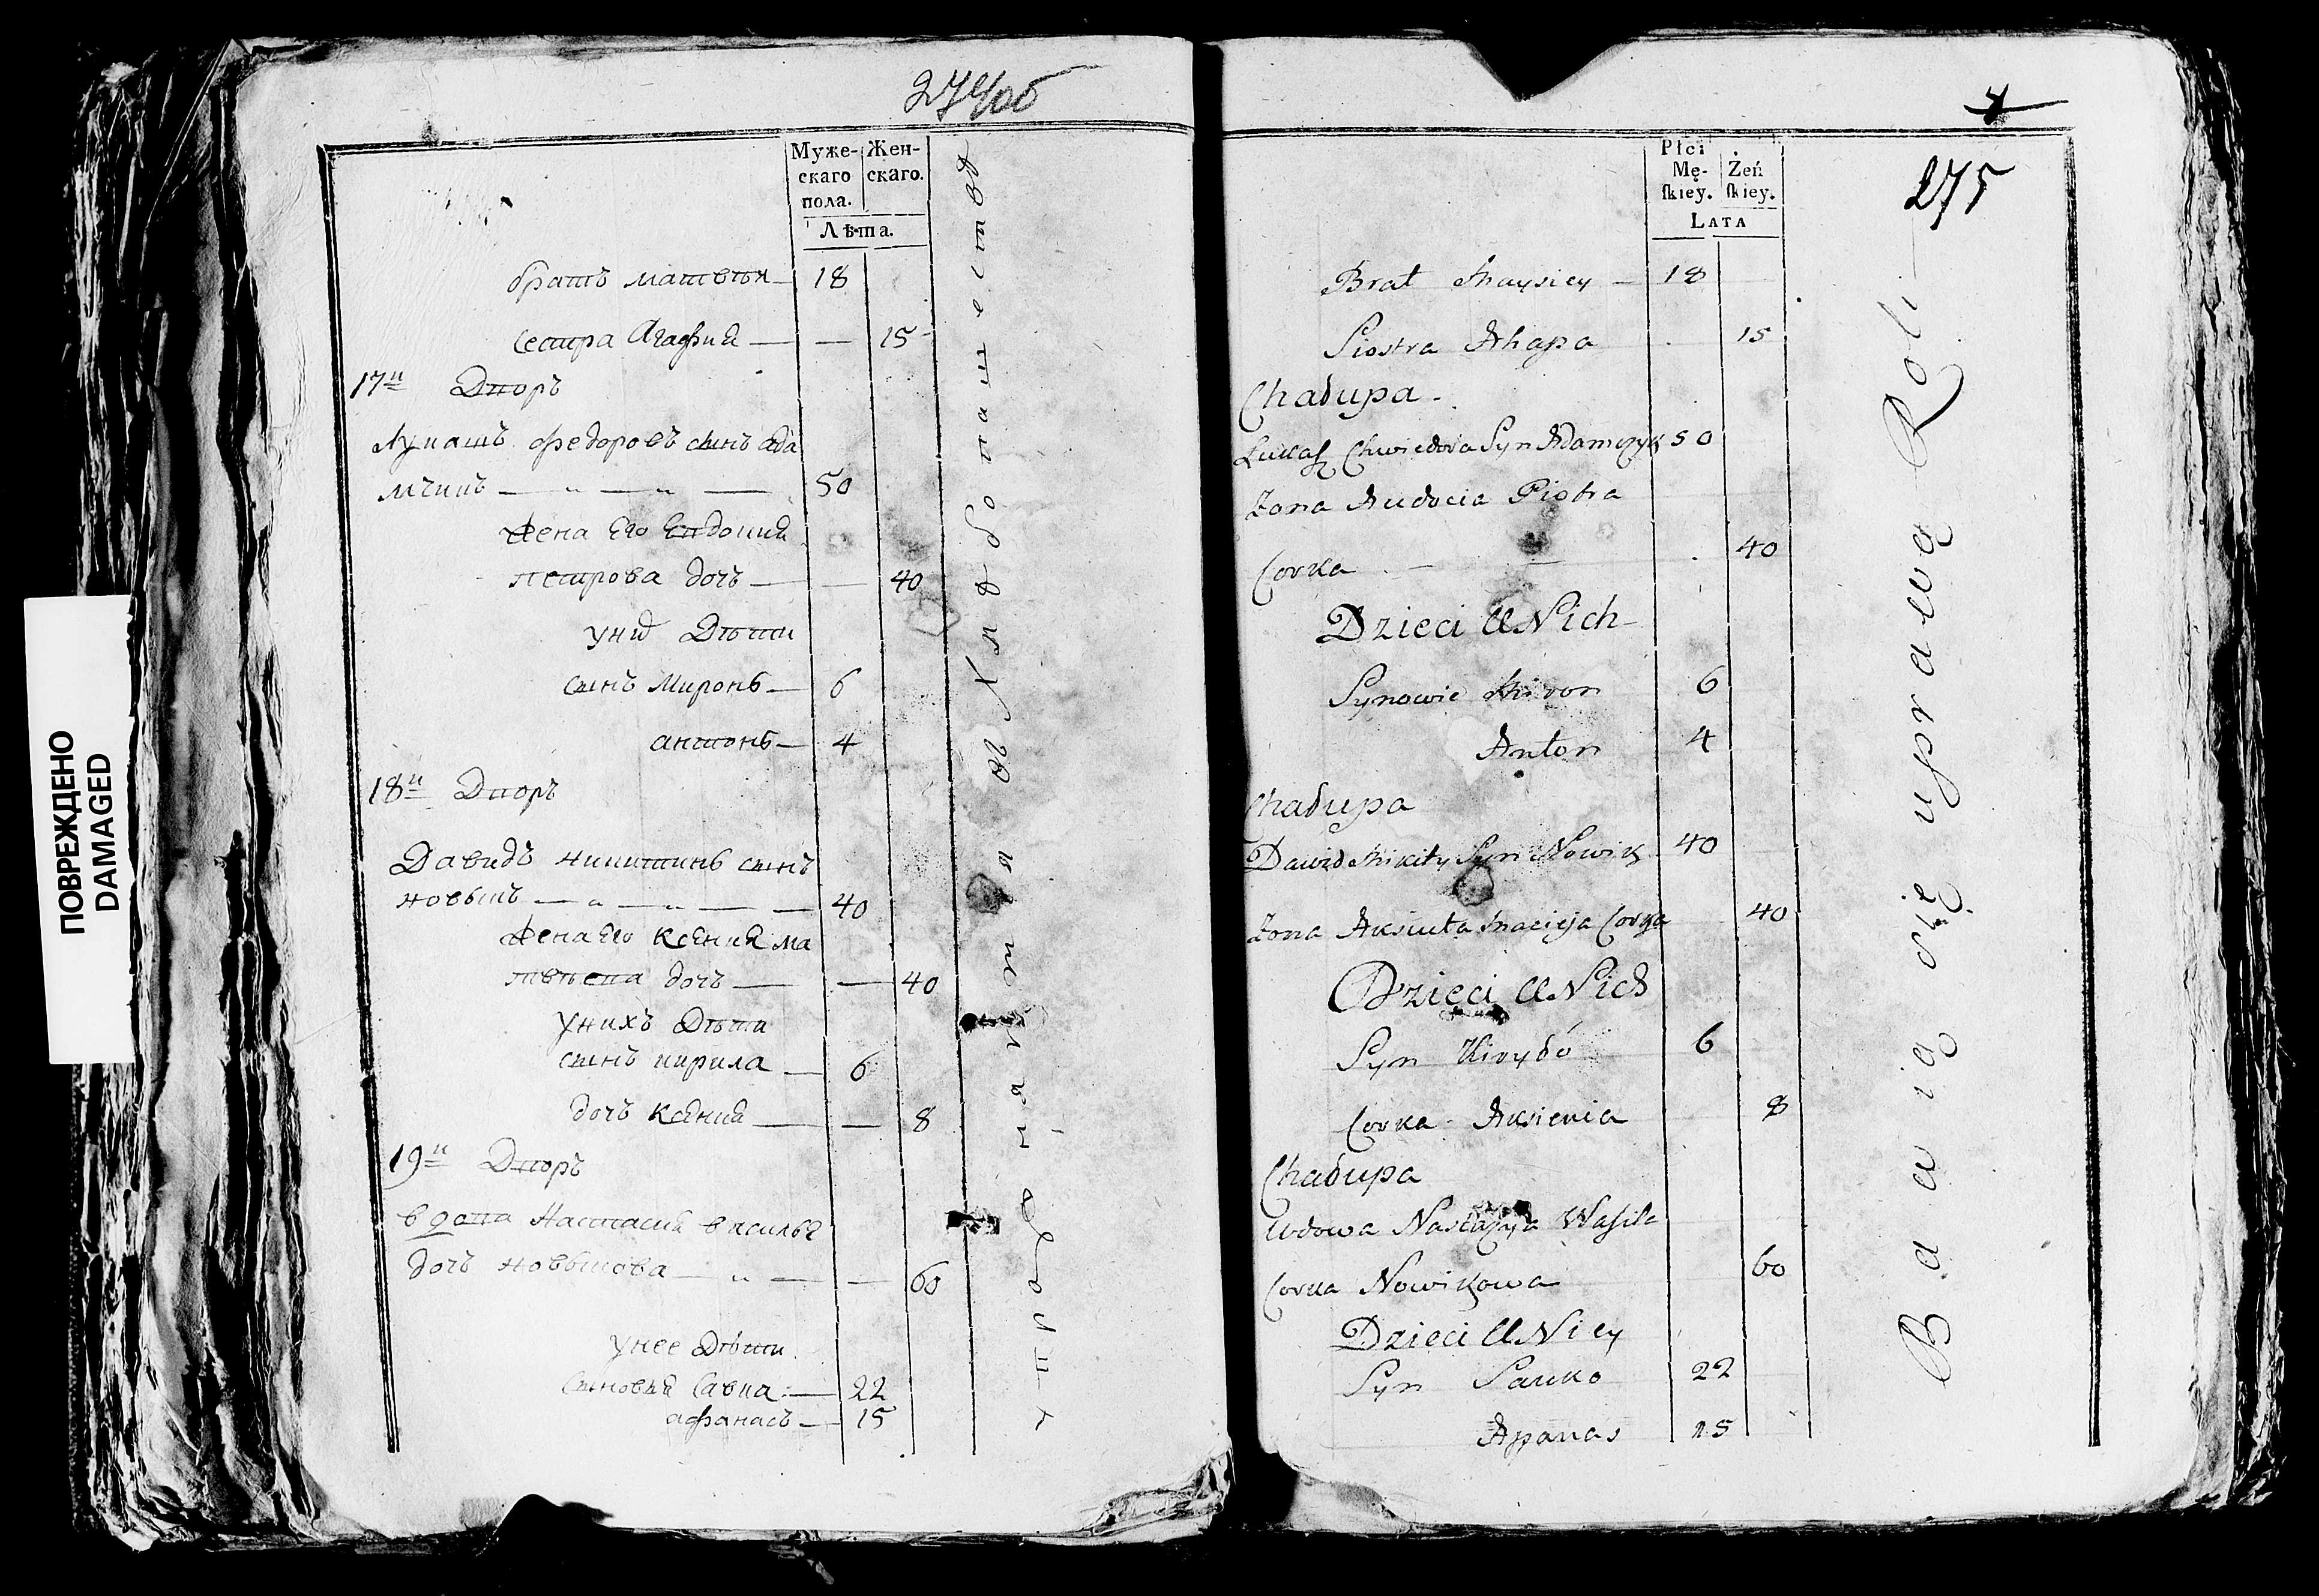 ПОВРЕЖДЕНО
DAMAGED
274об
Муже-
скаго
пола.
Жен-
скаго.
Лѣта.
братъ матвѣй — 18
сестра Агафия — — 15
17й Дворъ
Лукашъ федоровъ сынъ ада
мчикъ — „ — „ — 50
Жена Его Евдокия
петрова дочь — — 40
уних Дѣти
сынъ Миронъ — 6
антонъ — 4
18й Дворъ
Давидъ никитинъ сынъ
новыкъ — „ — „ — — 40
Жена Его Ксения ма
твѣева дочь — — 40
унихъ Дѣти
сынъ кирила — 6
дочь Ксения — — 8
19й Дворъ
вдова Настасия василье
дочь новыкова — „ — — 60
унее Дѣти
сыновья Савка — 22
афанасъ — 15
упражняются в хлебопашестве
4
275
Płci
Mę-
ſkiey.
Żeń
ſkiey.
LATA
Brat Maysiey — 18
Siostra Ahapa 15
Chałupa
Łukasz Chwiedora Syn Adamczyk 50
Żona Audocia Piotra
Corka — — 40
Dzieci U Nich
Synowie Miron 6
Anton 4
Chałupa
Dawid Mikity Syn Nowik 40
Żona Aksiuta Macieja Corka 40
Dzieci U Nich
Syn Kiryło 6
Corka Aksienia 8
Chałupa
Wdowa Nastazya Wasila
Corka Nowikowa 60
Dzieci U Niey
Syn Sauko 22
Apanas 15
Bawią się uprawą Roli